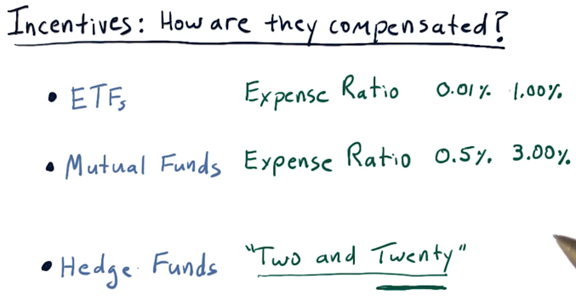 Incentives: How are they compensated?
• ETFs Expense Ratio 0.01% 1.00%
• Mutual Funds Expense Ratio 0.5% 3.00%
• Hedge Funds "Two and Twenty"